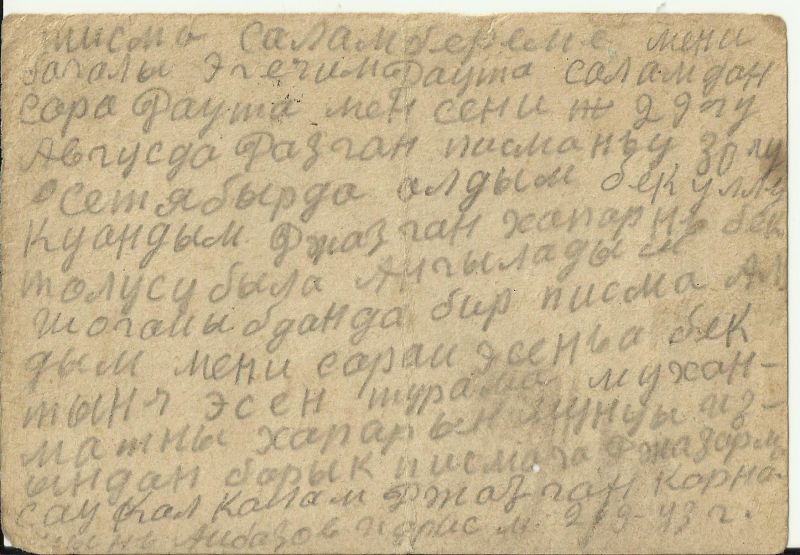 писмо саламбереме мени
багалы эгечим Фаута саламдан
сора Фаута мен сени 29гу
Августа Фазган писманъу 30
сетябырда алдым бек уллу
куандым. Фжазган хапарнъ бек
толусу была Ангыладым
Шоганы бданда бир писма Ал
дым мени сорай эсенъа бек
тынч эсен турама мухан-
матны хапарын
ындан барык писмаго Фжазарма
сау кал капам Фжазган Карна
Аибазов Идрис м. 43 г.